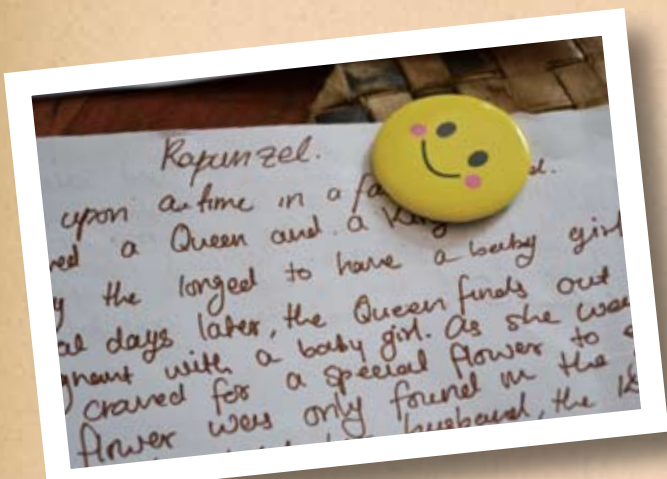 Rapunzel.
upon a time in a fa
a Queen and a King
the longed to have a baby girl
days later, the Queen finds out
with a baby girl. As she was
craved for a special flower to
flower was only found in the
husband, the